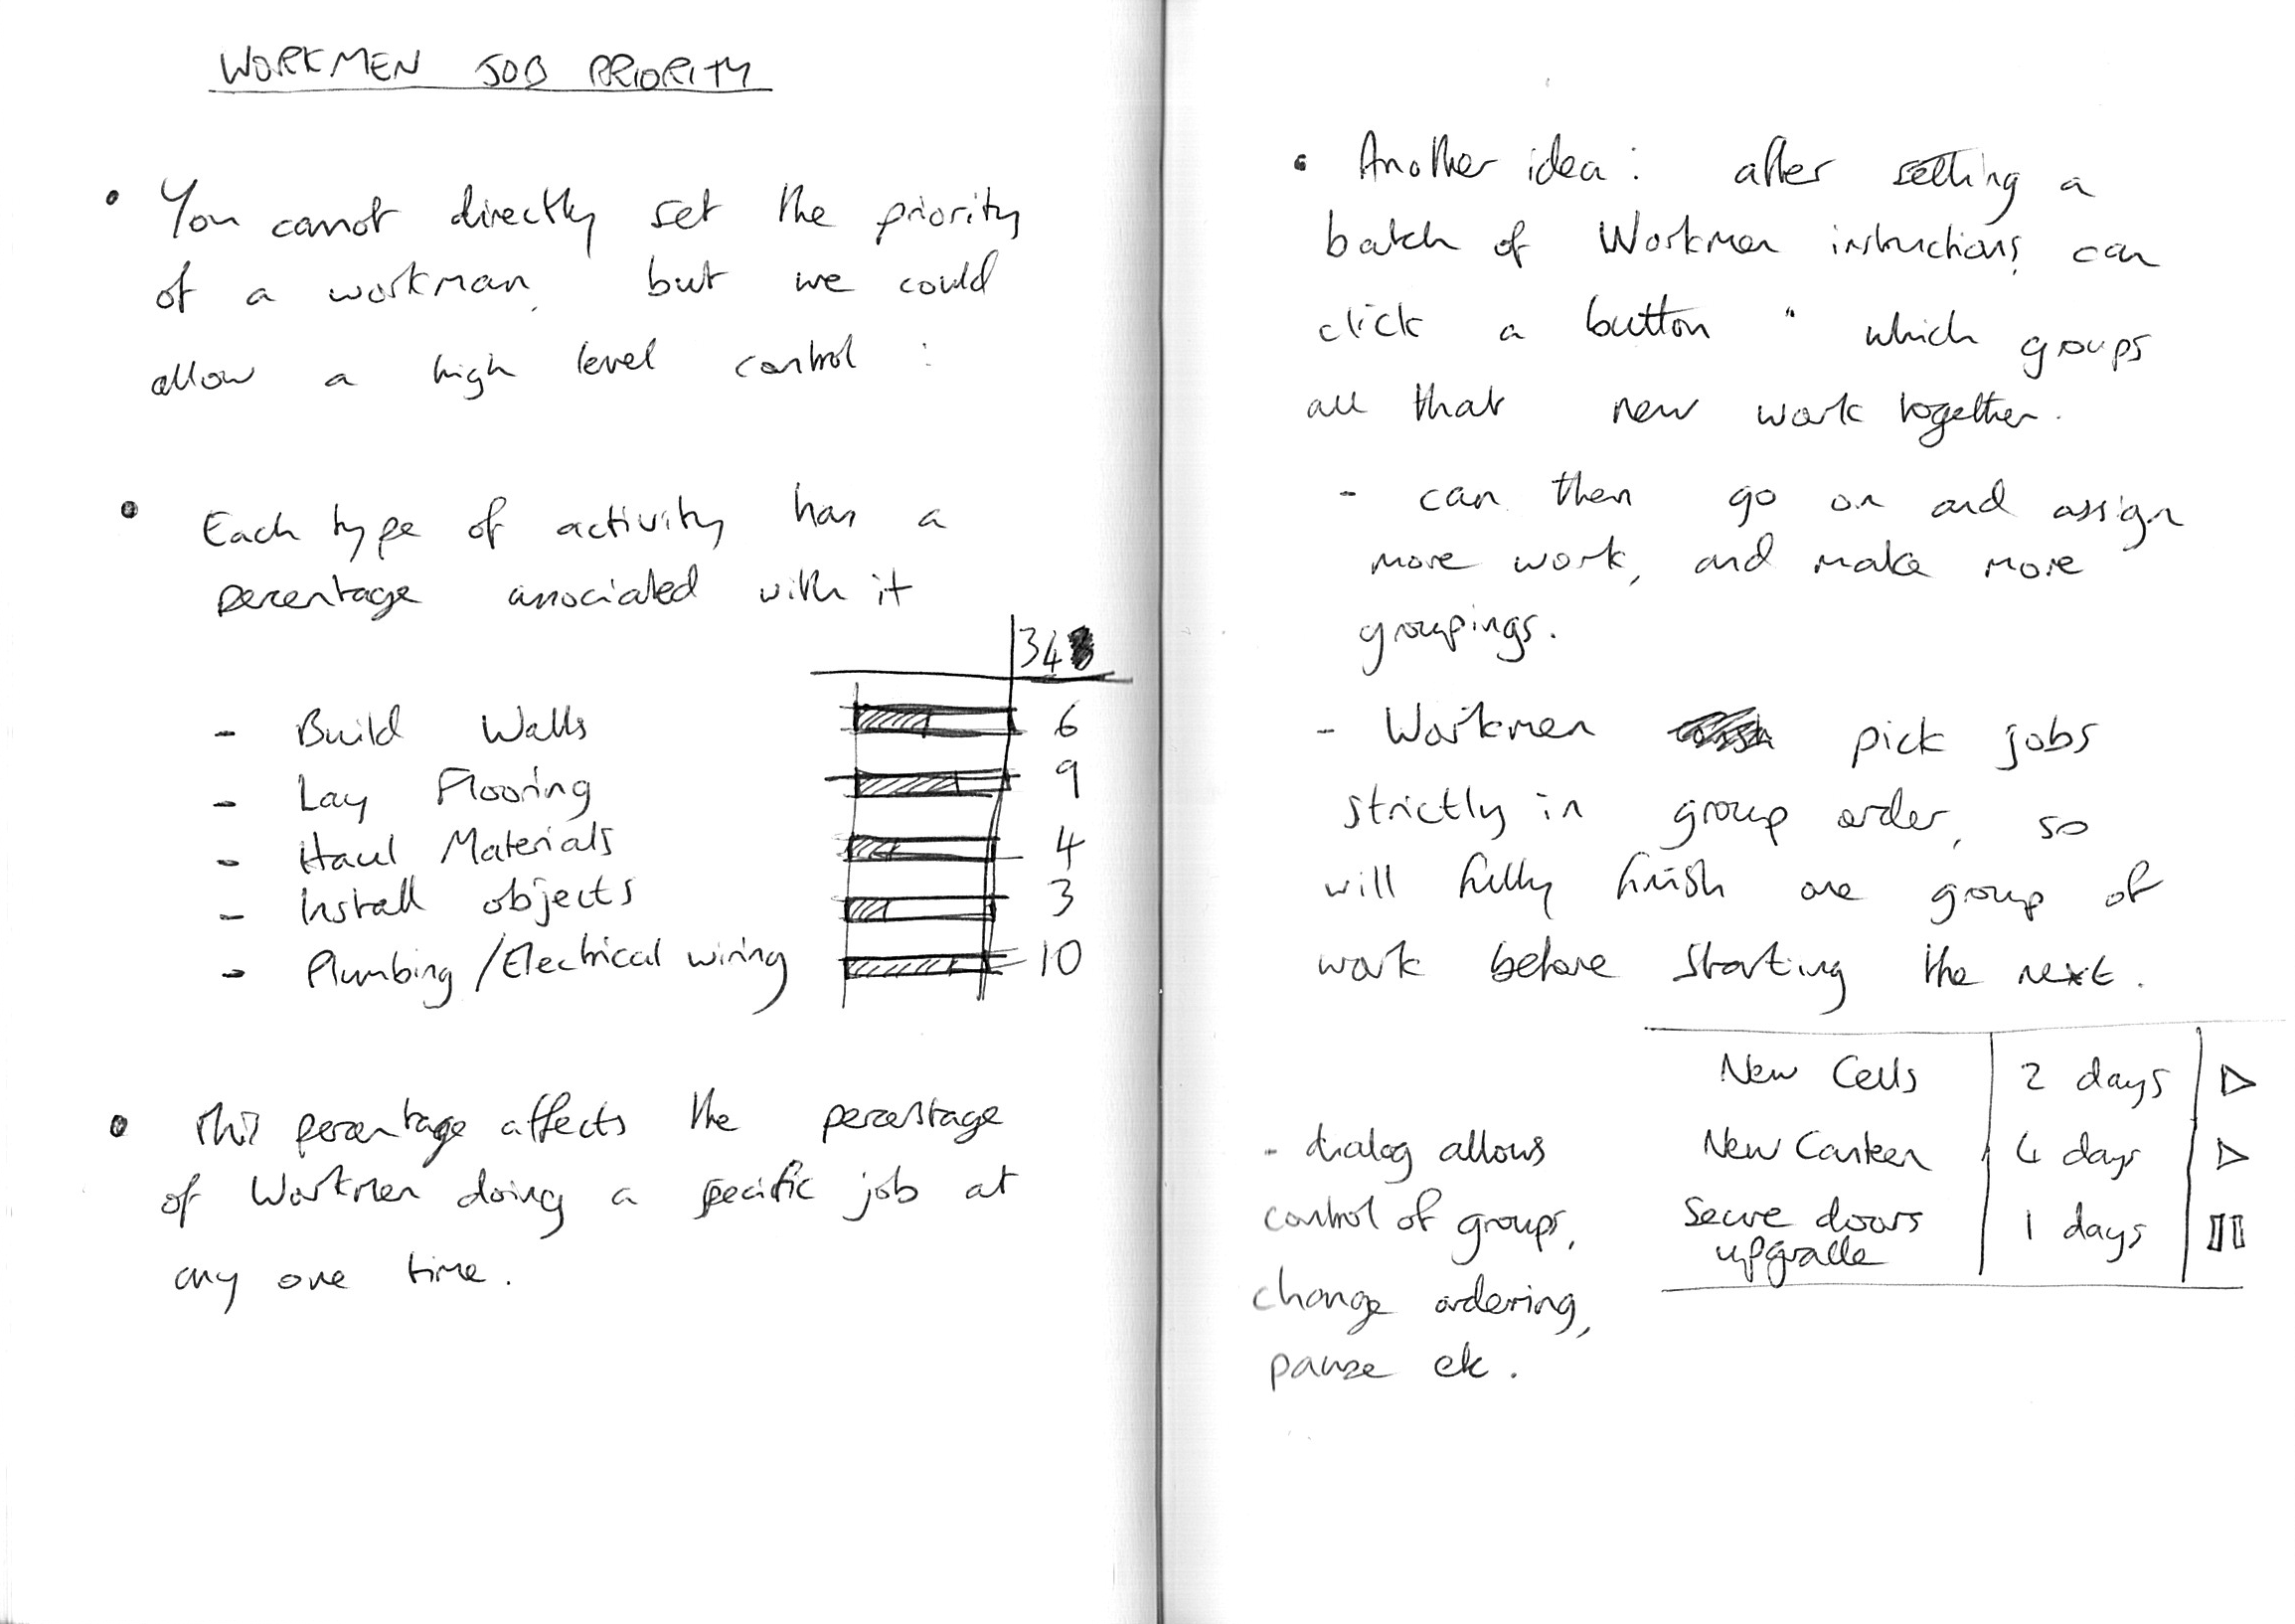 WORKMEN JOB PRIORITY
• You cannot directly set the priority
of a workman, but we could
allow a high level control :
• Each type of activity has a
percentage associated with it
34
- Build Walls 6
- Lay Flooring 9
- Haul Materials 4
- Install objects 3
- Plumbing / Electrical wiring 10
• This percentage affects the percentage
of Workmen doing a specific job at
any one time.
• Another idea : after setting a
batch of Workmen instructions, can
click a button " which groups
all that new work together.
- can then go on and assign
more work, and make more
groupings.
- Workmen pick jobs
strictly in group order, so
will fully finish one group of
work before starting the next.
New Cells 2 days
New Canteen 4 days
Secure doors 1 days
upgrade
- dialog allows
control of groups,
change ordering,
pause etc.